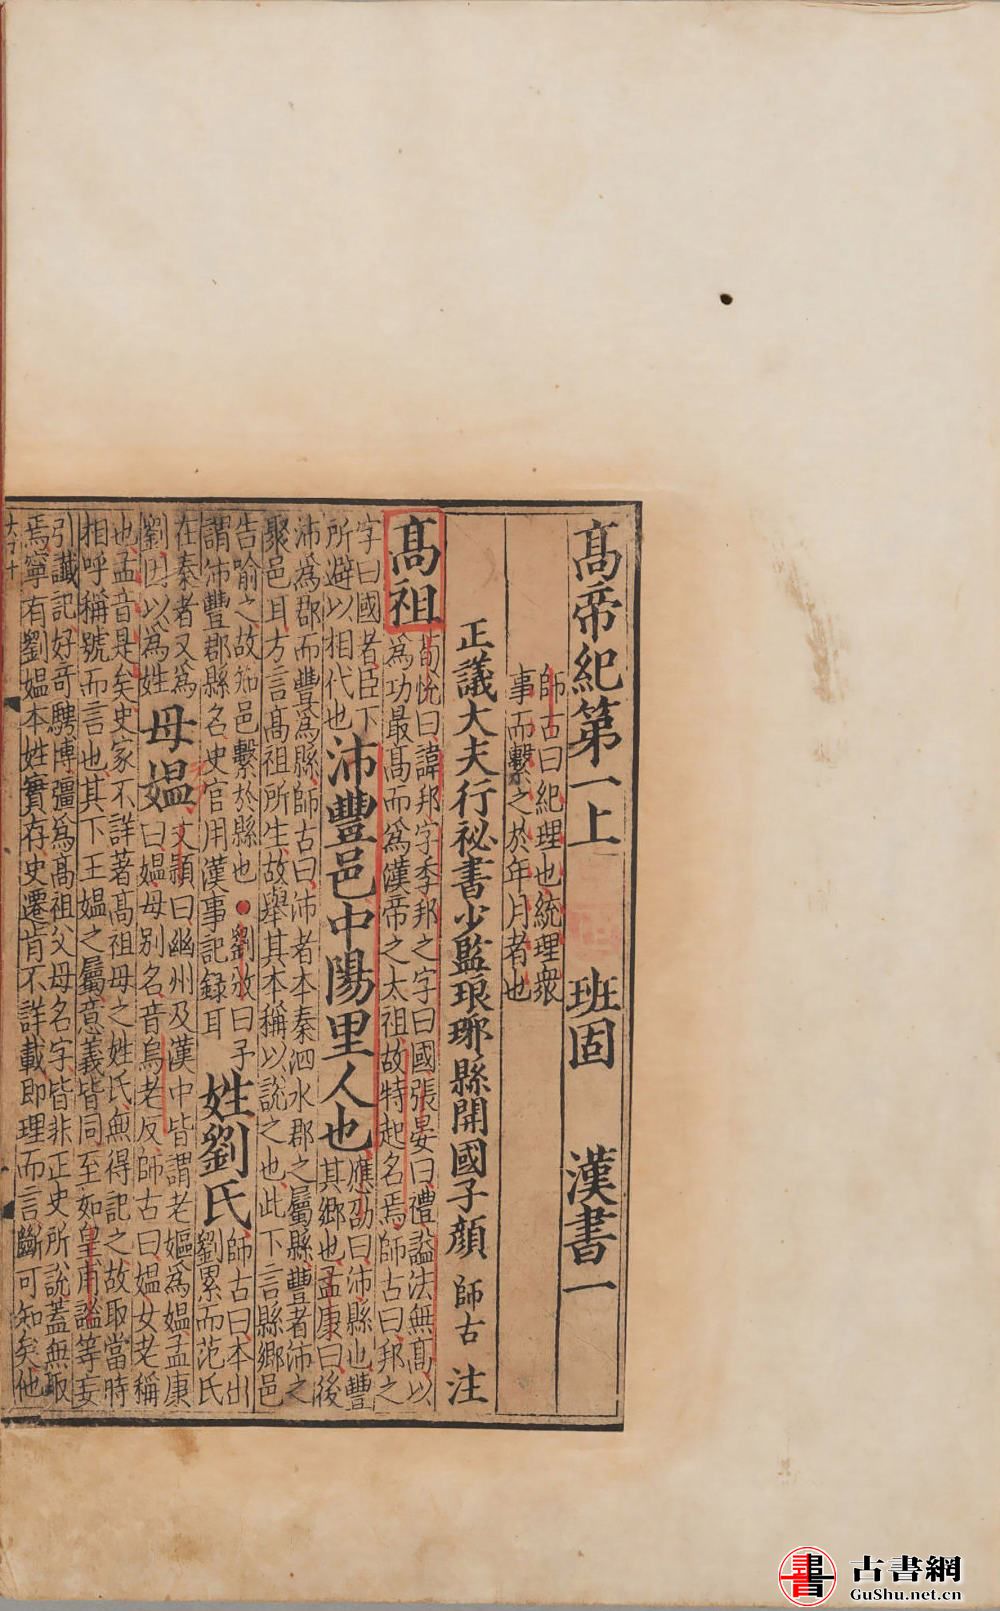 高帝紀第一上　班固　漢書一
師古曰紀理也統理衆
事而繫之於年月者也
正議大夫行祕書少監琅琊縣開國子顔　師古　注
高祖
荀悅曰諱邦字季邦之字曰國張晏曰禮謚法無高以
爲功最高而爲漢帝之太祖故特起名焉師古曰邦之
字曰國者臣下
所避以相代也
沛豐邑中陽里人也
應劭曰沛縣也豐
其鄉也孟康曰後
沛爲郡而豐爲縣師古曰沛者本秦泗水郡之屬縣豐者沛之
聚邑耳方言高祖所生故舉其本稱以說之也此下言縣鄉邑
告喻之故知邑繫於縣也●劉攽曰子
謂沛豐郡縣名史官用漢事記録耳
姓劉氏
師古曰本出
劉累而范氏
在秦者又爲
劉因以為姓
母媪
文穎曰幽州及漢中皆謂老嫗爲媪孟康
曰媪母别名音烏老反師古曰媪女老稱
也孟音是矣史家不詳著高祖母之姓氏無得記之故取當時
相呼稱號而言也其下王媪之屬意義皆同至如皇甫謐等妄
引讖記好奇騁博彊爲高祖父母名字皆非正史所說蓋無取
焉寧有劉媪本姓實存史遷肯不詳載即理而言斷可知矣他
書
古書網
GuShu.net.cn